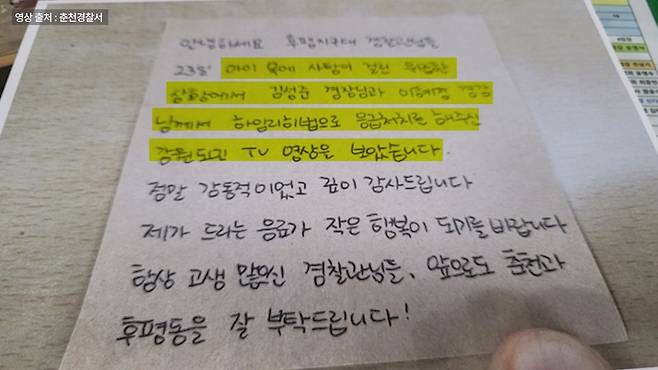 영상 출처 : 춘천경찰서
안녕하세요 후평지구대 경찰관님들
23일 아이 목에 사탕이 걸린 위급한
상황에서 김성준 경장님과 이혜경 경감
님께서 하임리히법으로 응급처치를 해주신
강원도민 TV 영상을 보았습니다.
정말 감동적이었고 깊이 감사드립니다
제가 드리는 음료가 작은 행복이 되기를 바랍니다
항상 고생 많으신 경찰관님들, 앞으로도 춘천과
후평동을 잘 부탁드립니다!